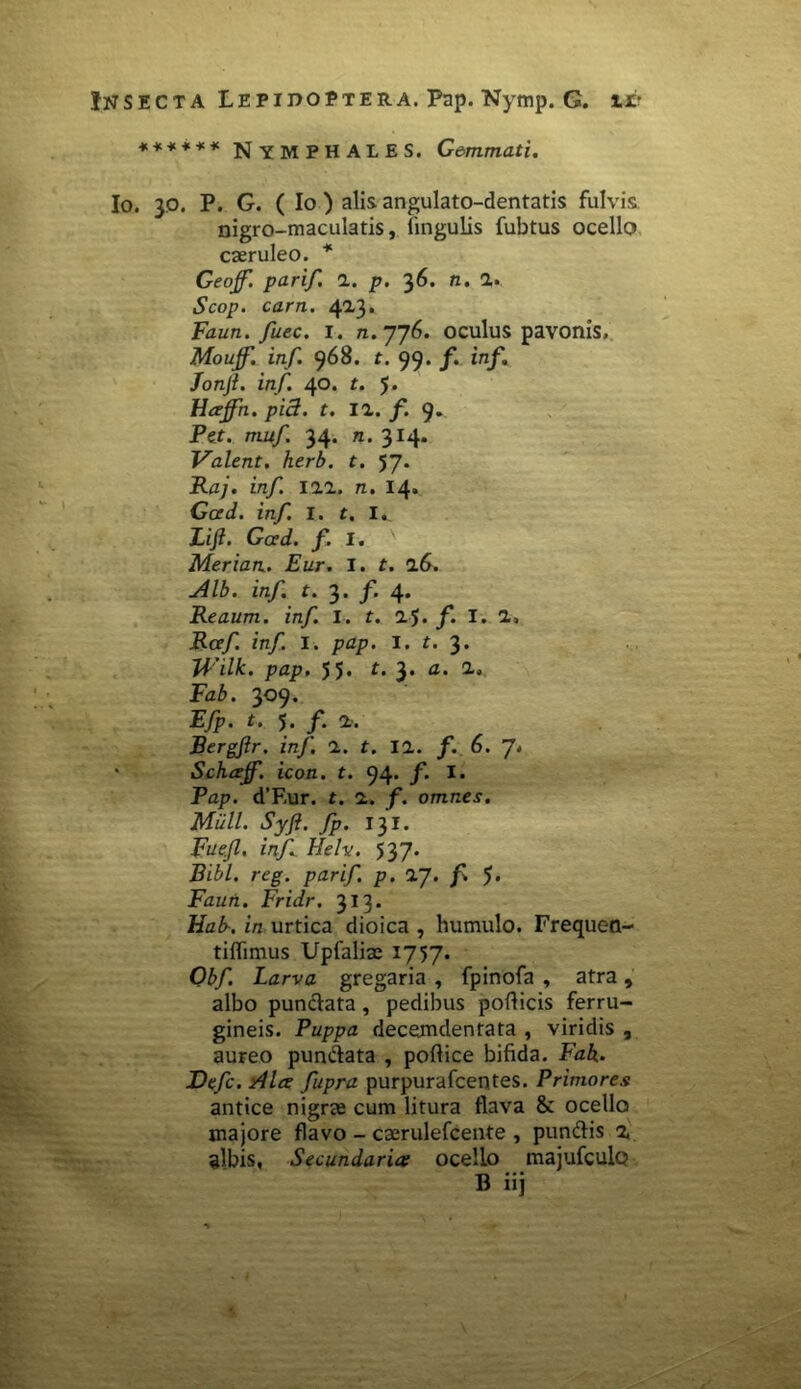 INSECTA LEPIDOPTERA. Pap. Nymp. G.
****** NYMPHALES. Gemmati.
Io. 30. P. G. ( Io ) alis angulato-dentatis fulvis
nigro-maculatis, ſingulis ſubtus ocello
cæruleo. *
Geoff. pariſ. 2. p. 36. n. 2.
Scop. carn. 423.
Faun. ſuec. 1. n. 776. oculus pavonis.
Mouff. inſ. 968. t. 99. f. inf.
Jonſt. inſ. 40. t. 5.
Hæffn. pict. t. 12. f. 9.
Pet. muſ. 34. n. 314.
Valent. herb. t. 57.
Raj. inſ. 122. n. 14.
Gœd. inſ. 1. t. 1.
Liſt. Gœd. f. 1.
Merian. Eur. 1. t. 26.
Alb. inſ. t. 3. f. 4.
Reaum. inſ. 1. t. 25. f. 1. 2.
Rœſ. inſ. 1. pap. 1. t. 3.
Wilk. pap. 55. t. 3. a. 2.
Fab. 309.
Eſp. t. 5. f. 2.
Bergſtr. inſ. 2. t. 12. f. 6. 7.
Schæff. icon. t. 94. f. 1.
Pap. d'Eur. t. 2. f. omnes.
Müll. Syſt. ſp. 131.
Fueſl. inſ. Helv. 537.
Bibl. reg. pariſ. p. 27. f. 5.
Faun. Fridr. 313.
Hab. in urtica dioica , humulo. Frequen-
tiſſimus Upſaliæ 1757.
Obſ. Larva gregaria , ſpinoſa , atra ,
albo punctata , pedibus poſticis ferru-
gineis. Puppa decemdentata , viridis ,
aureo punctata , poſtice bifida. Fab.
Deſc. Alæ ſupra purpuraſcentes. Primores
antice nigræ cum litura flava & ocello
majore flavo - cæruleſcente , punctis 2
albis, Secundariæ ocello majuſculo
B iij